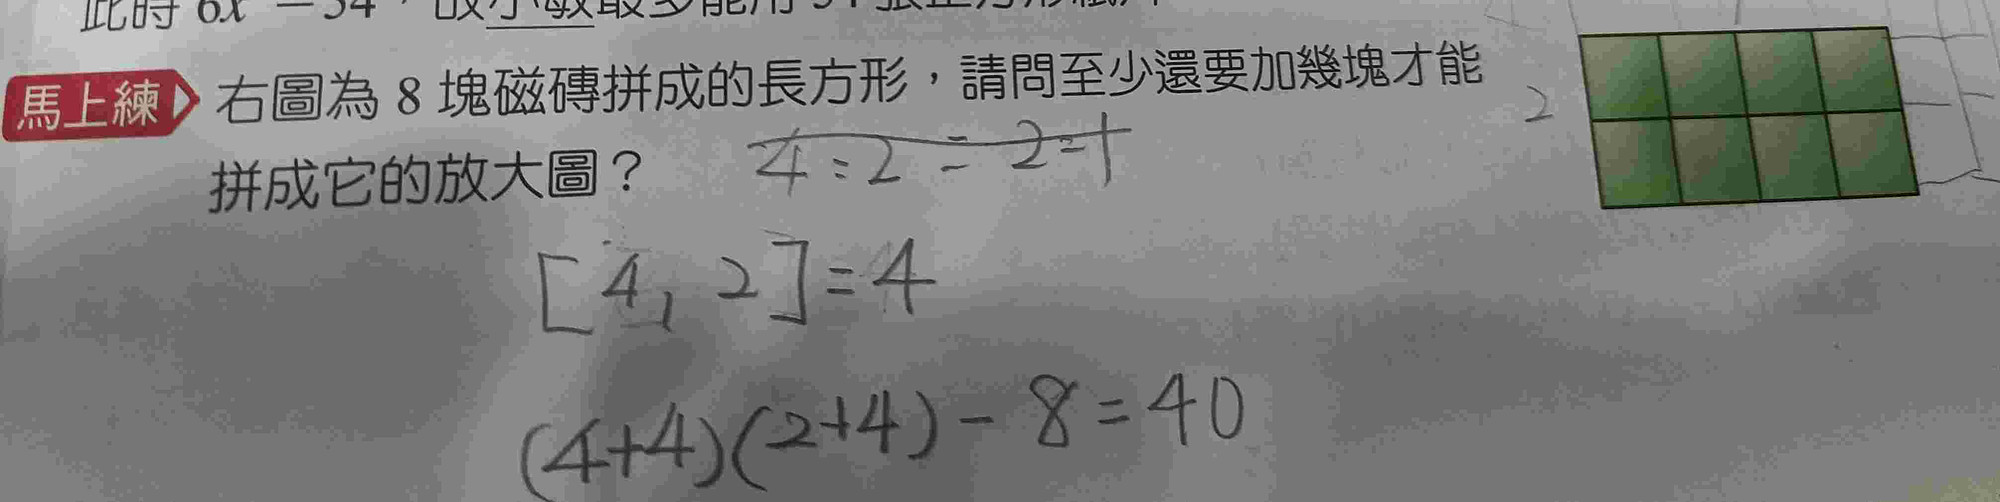 此時 6x = 54，故小敏最多能用 54 張正方形紙片
馬上練 右圖為 8 塊磁磚拼成的長方形，請問至少還要加幾塊才能
拼成它的放大圖？
4:2=2=1
2
[4, 2]=4
(4+4)(2+4)-8=40